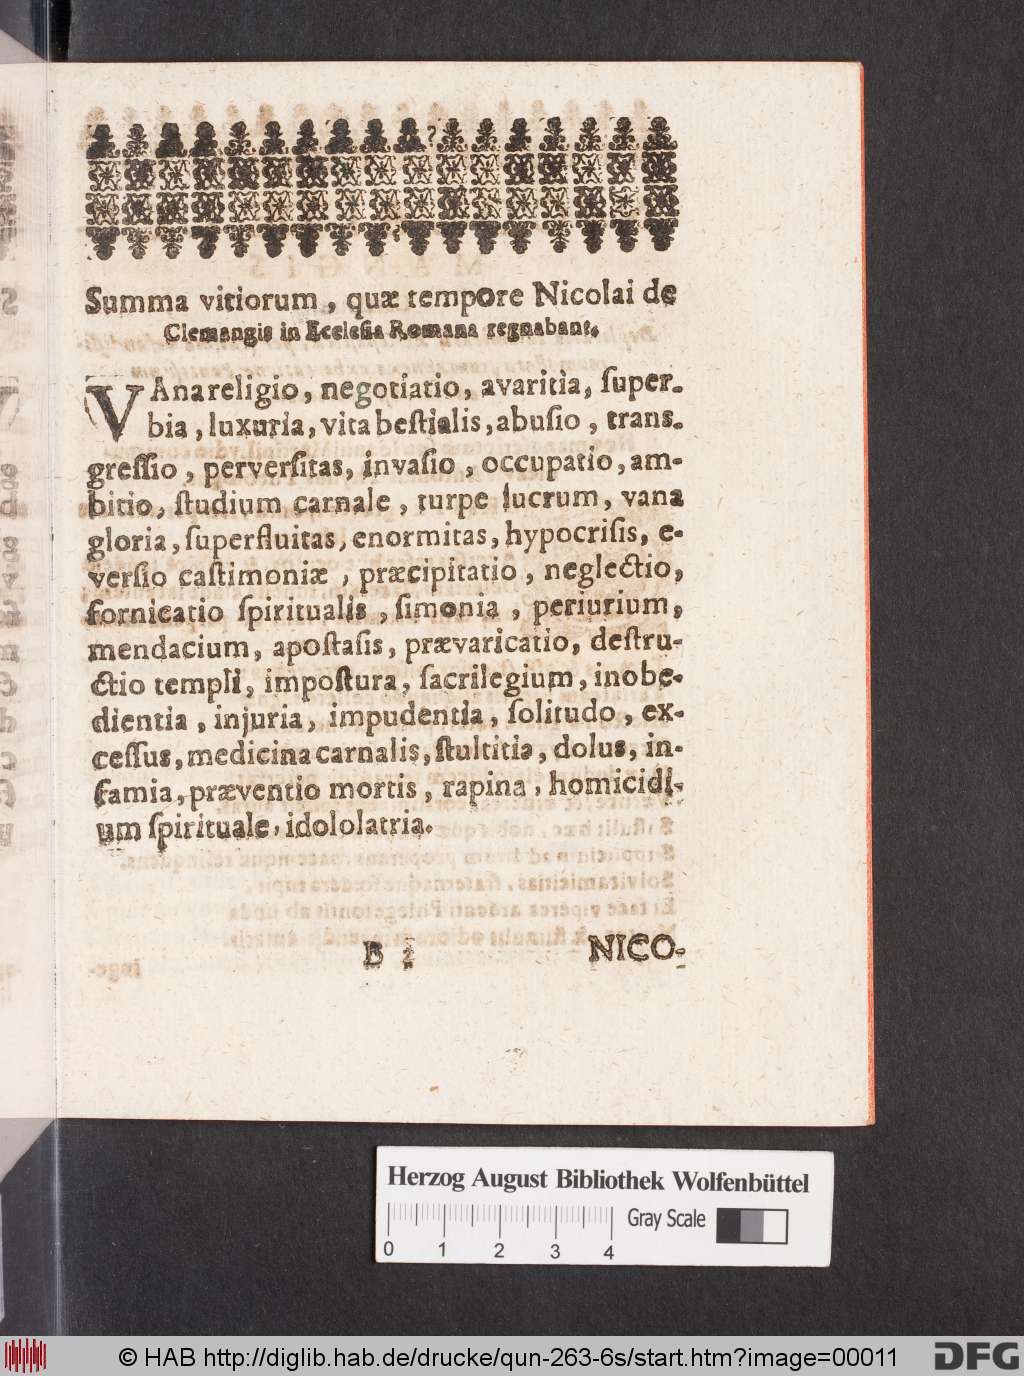 Summa vitiorum, quæ tempore Nicolai de
Clemangis in Ecclesia Romana regnabant.
VAnareligio, negotiatio, avaritia, ſuper-
bia, luxuria, vita beſtialis, abuſio, trans-
greſſio, perverſitas, invaſio, occupatio, am-
bitio, ſtudium carnale, turpe lucrum, vana
gloria, ſuperfluitas, enormitas, hypocriſis, e-
verſio caſtimoniæ, præcipitatio, neglectio,
fornicatio ſpiritualis, ſimonia, periurium,
mendacium, apoſtaſis, prævaricatio, deſtru-
ctio templi, impoſtura, ſacrilegium, inobe-
dientia, injuria, impudentia, ſolitudo, ex-
ceſſus, medicina carnalis, ſtultitia, dolus, in-
famia, præventio mortis, rapina, homicidi-
um ſpirituale, idololatria.
B 2 NICO-
Herzog August Bibliothek Wolfenbüttel
Gray Scale
0 1 2 3 4
© HAB http://diglib.hab.de/drucke/qun-263-6s/start.htm?image=00011
DFG